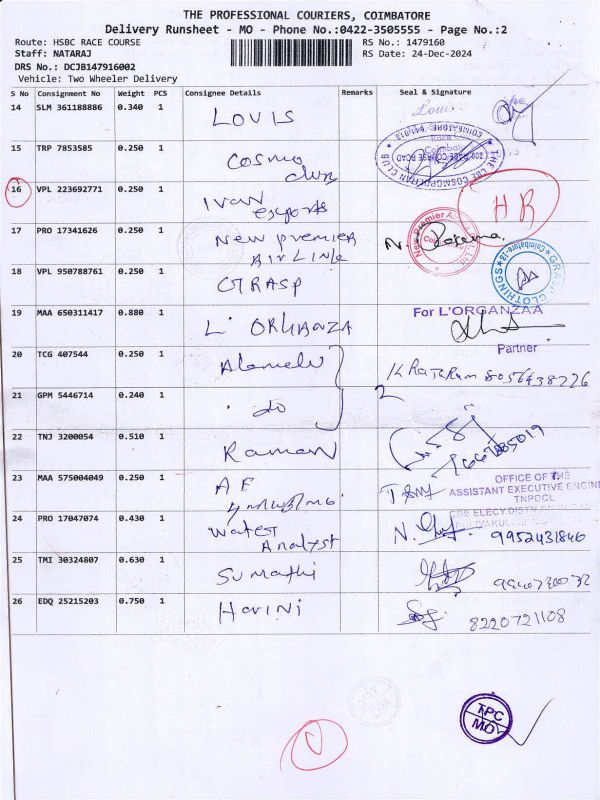 THE PROFESSIONAL COURIERS, COIMBATORE
Delivery Runsheet - MO - Phone No.:0422-3505555 - Page No.:2
Route: HSBC RACE COURSE
RS No.: 1479160
Staff: NATARAJ
RS Date: 24-Dec-2024
DRS No.: DCJB147916002
Vehicle: Two Wheeler Delivery
S No Consignment No Weight PCS Consignee Details Remarks Seal & Signature
14 SLM 361188886 0.340 1 LOUIS Louis
15 TRP 7853585 0.250 1 Cosmo club
THE CBE COSMOPOLITAN CLUB
16 VPL 223692771 0.250 1 Ivan exports HR
17 PRO 17341626 0.250 1 New premier AIRLINK
18 VPL 950788761 0.250 1 GRASP
GRASP CLOTHINGS Coimbatore-18
19 MAA 650311417 0.880 1 L' ORGANZA
For L'ORGANZAA
Partner
20 TCG 407544 0.250 1 Alamelu
21 GPM 5446714 0.240 1 do 2
22 TNJ 3200054 0.510 1 Raman
23 MAA 575004049 0.250 1 AE
OFFICE OF THE
ASSISTANT EXECUTIVE ENGINE
TNPDCL
24 PRO 17047074 0.430 1 Water Analyst 9952431846
25 TMI 30324807 0.630 1 Sumathi
26 EDQ 25215203 0.750 1 Harini 8220721108
TPC
MO